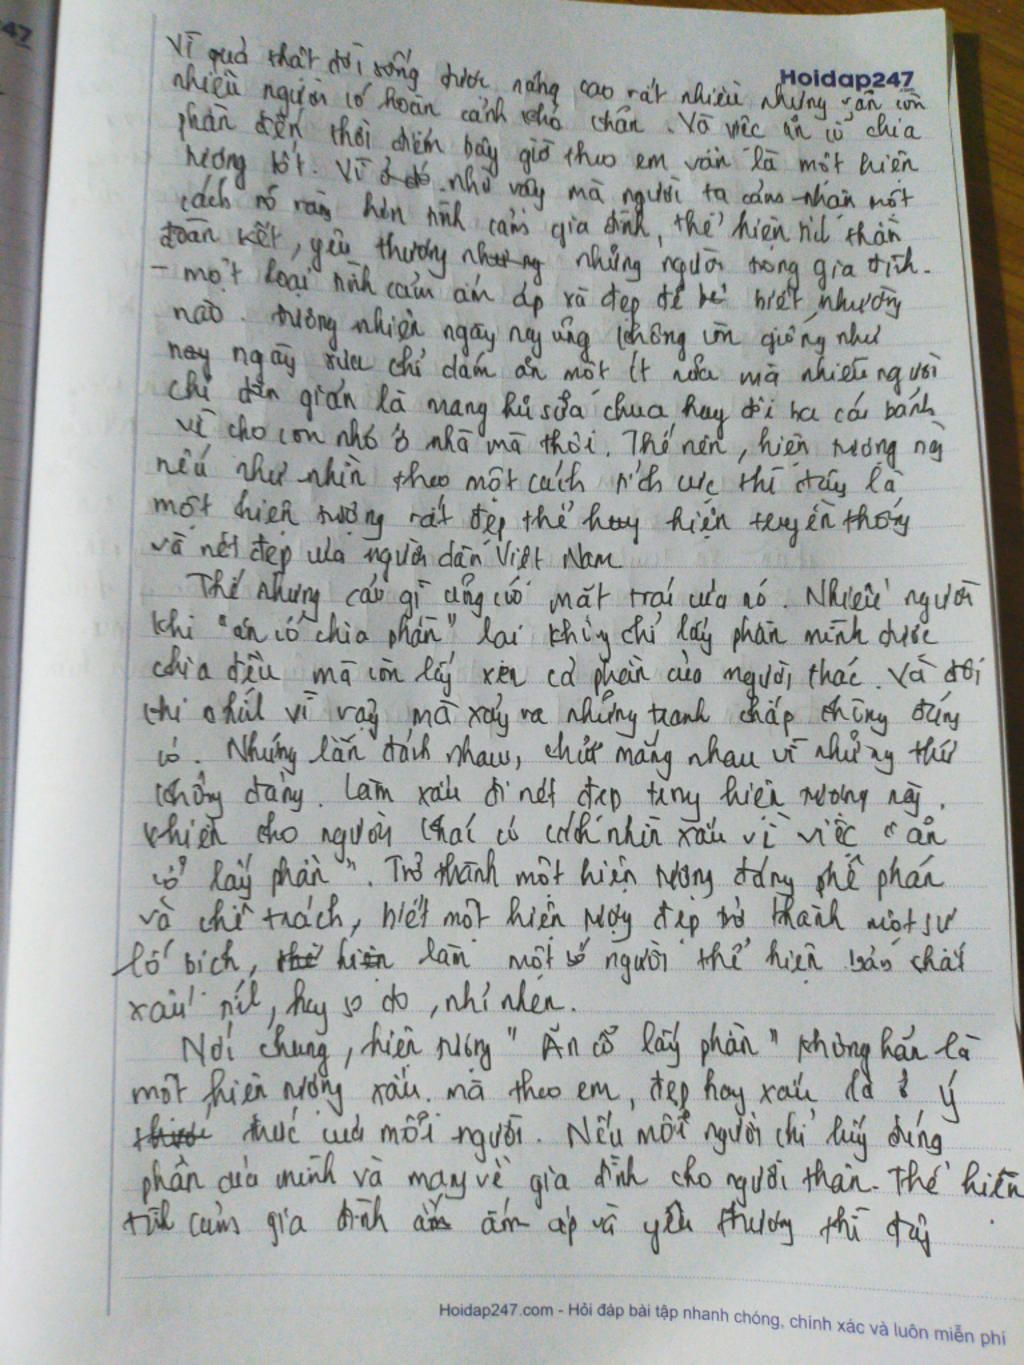 Hoidap247
Vì quả thật đời sống được nâng cao rất nhiều nhưng vẫn còn
nhiều người có hoàn cảnh khó khăn. Và việc ăn cỗ chia
phần đến thời điểm bây giờ theo em vẫn là một hiện
tượng tốt. Vì nhờ vậy mà người ta cảm nhận một
cách rõ ràng hơn tình cảm gia đình, thể hiện tình thần
đoàn kết, yêu thương những người trong gia đình.
- một loại tình cảm ấm áp và đẹp đẽ biết nhường
nào. Đương nhiên ngày nay cũng không còn giống như
ngày xưa chỉ dám ăn một ít nữa mà nhiều người
chỉ đơn giản là mang hũ sữa chua hay đôi ba cái bánh
về cho con nhỏ ở nhà mà thôi. Thế nên, hiện tượng này
nếu như nhìn theo một cách tích cực thì đây là
một hiện tượng rất đẹp thể hiện truyền thống
và nét đẹp của người dân Việt Nam
Thế nhưng cái gì cũng có mặt trái của nó. Nhiều người
khi "ăn cỗ chia phần" lại không chỉ lấy phần mình được
chia đều mà còn lấy cả phần của người khác. Và đôi
khi chút vì vậy mà xảy ra những tranh chấp không đáng
có. Những lần đánh nhau, chửi mắng nhau vì những thứ
không đáng. Làm xấu đi nét đẹp trong hiện tượng này.
khiến cho người khác có cái nhìn xấu về việc "ăn
cỗ lấy phần". Trở thành một hiện tượng đáng phê phán
và chê trách, biết một hiện tượng đẹp trở thành một sự
lố bịch, làm một số người thể hiện bản chất
xấu tính, hay so đo, nhỏ nhen.
Nói chung, hiện tượng "Ăn cỗ lấy phần" không hẳn là
một hiện tượng xấu. mà theo em, đẹp hay xấu là ở ý
thức của mỗi người. Nếu mỗi người chỉ lấy đúng
phần của mình và mang về gia đình cho người thân. Thể hiện
tình cảm gia đình ấm áp và yêu thương thì đây
Hoidap247.com - Hỏi đáp bài tập nhanh chóng, chính xác và luôn miễn phí